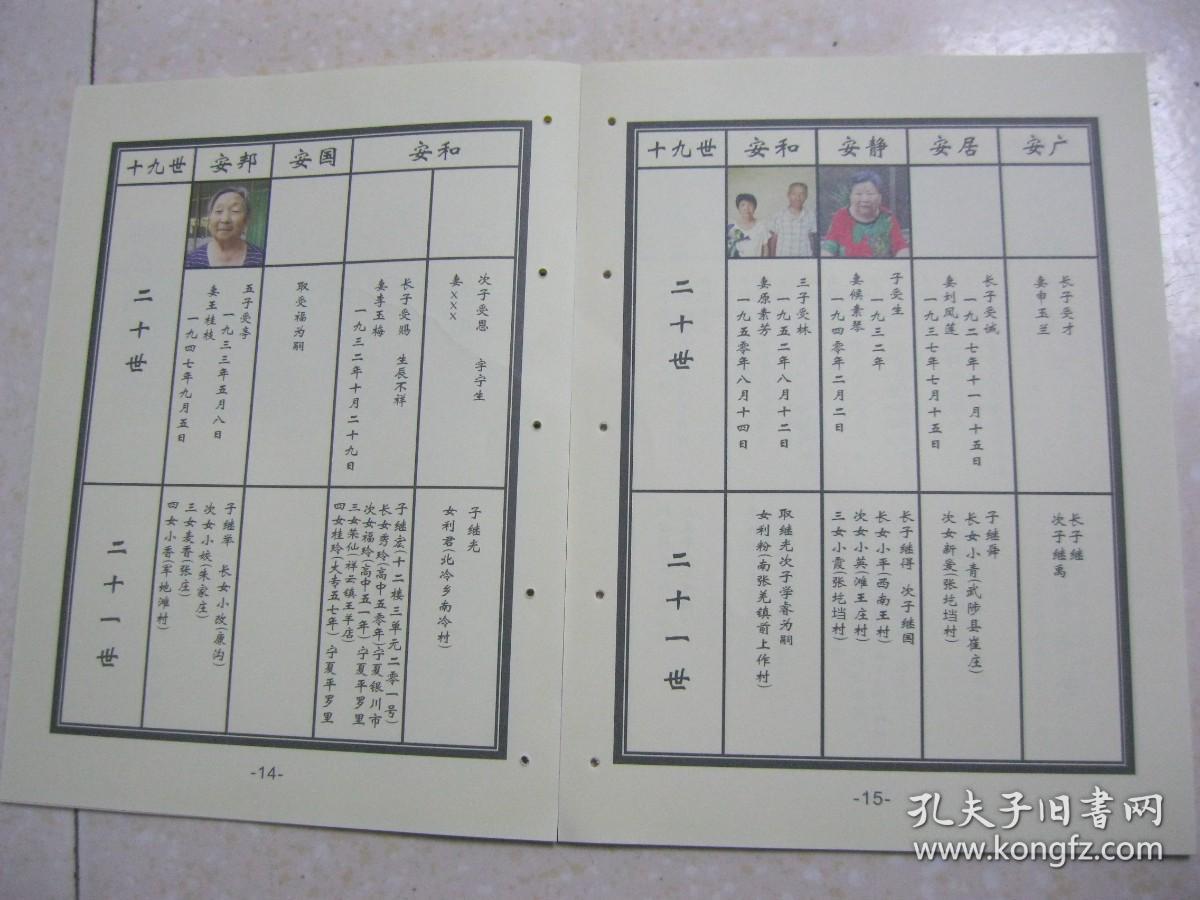 十九世
安邦
安国
安和
二十世
五子受亭
一九三三年五月八日
妻王桂枝
一九四七年九月五日
取受福为嗣
长子受赐 生辰不祥
妻李玉梅
一九三二年十月二十九日
次子受恩 字宁生
妻XXX
二十一世
子继举 长女小改(廉沟)
次女小姣(朱家庄)
三女麦香(张庄)
四女小香(军地滩村)
子继宏(十二楼三单元二零一号)
长女秀玲(高中五零年)宁夏银川市
次女福玲(高中五一年)宁夏平罗里
三女荣仙(祥云镇王羊店)
四女桂玲(大专五七年)宁夏平罗里
子继光
女利君(北冷乡南冷村)
-14-
十九世
安和
安静
安居
安广
二十世
三子受林
一九五二年八月十二日
妻原素芳
一九五零年八月十四日
子受生
一九三二年
妻候素琴
一九四零年二月二日
长子受诚
一九二七年十一月十五日
妻刘凤莲
一九三七年七月十五日
长子受才
妻申玉兰
二十一世
取继光次子学睿为嗣
女利粉(南张羌镇前上作村)
长子继得 次子继国
长女小平(西南王村)
次女小英滩王庄村)
三女小霞(张圪垱村)
子继舜
长女小青(武陟县崔庄)
次女新爱(张圪垱村)
长子继
次子继禹
-15-
孔夫子旧书网
www.kongfz.com